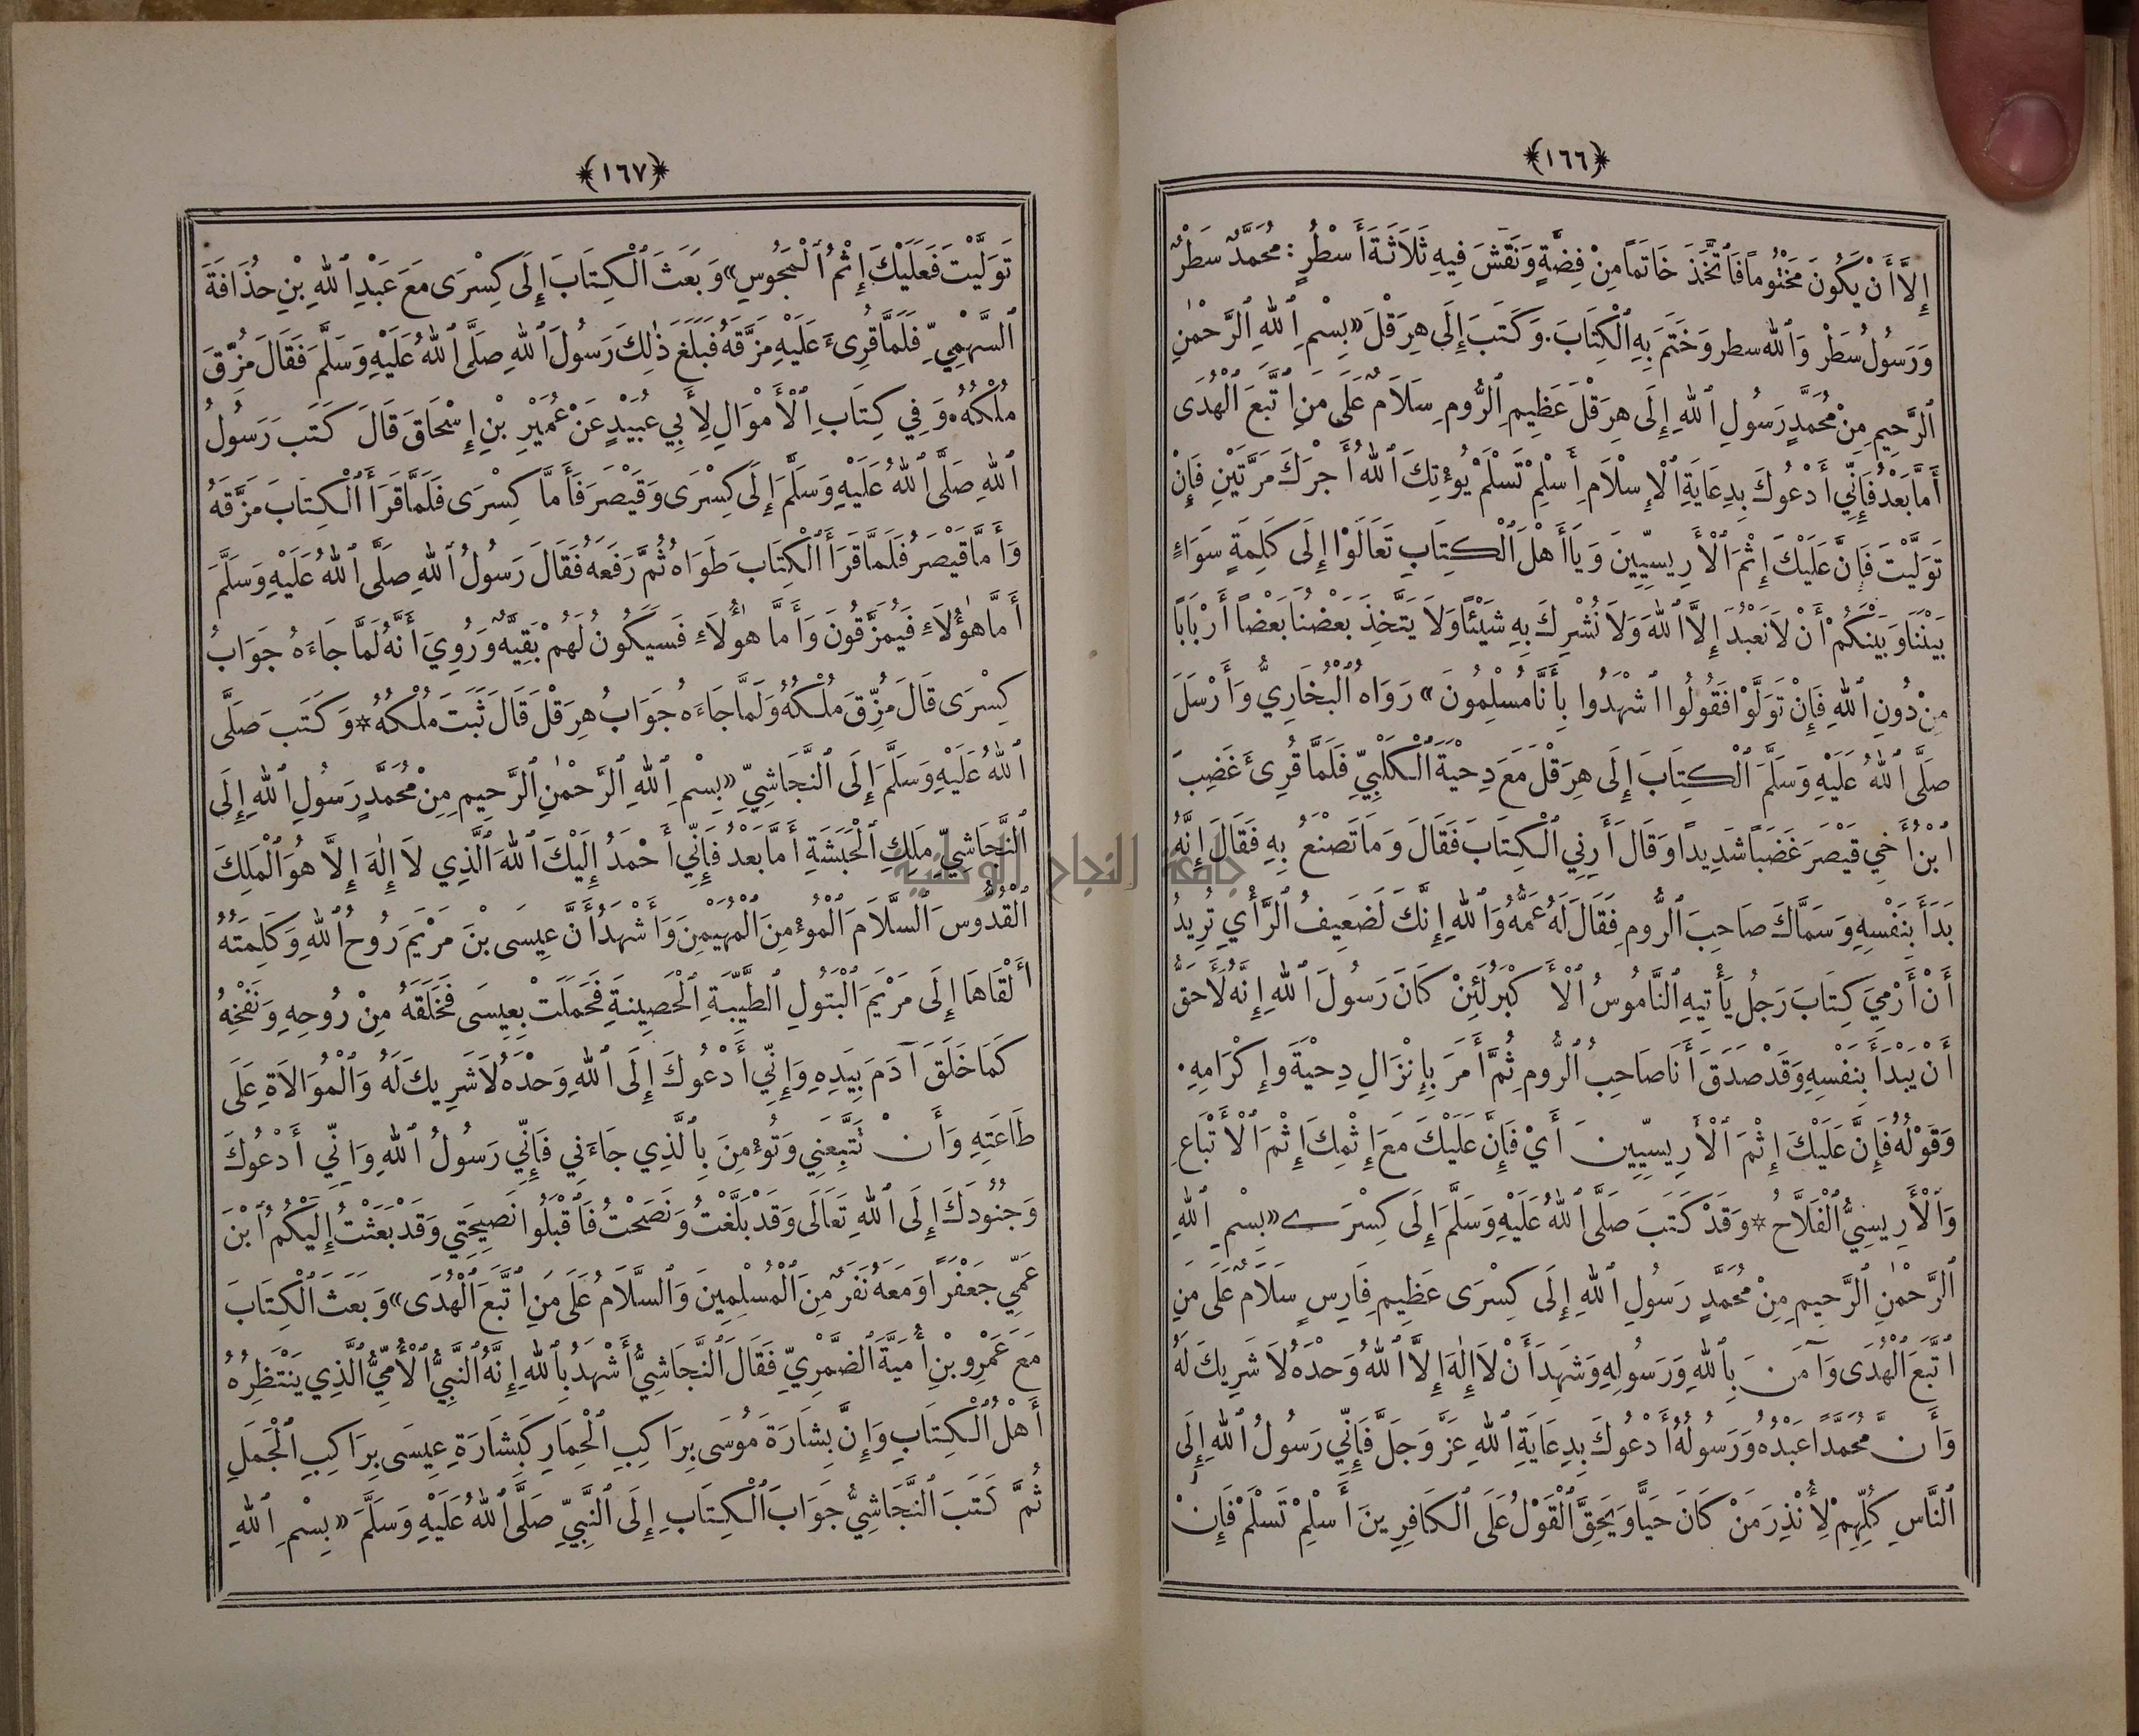 ﴿١٦٦﴾
إِلَّا أَنْ يَكُونَ مَخْتُومًا فَاتَّخَذَ خَاتَمًا مِنْ فِضَّةٍ وَنَقَشَ فِيهِ ثَلَاثَةَ أَسْطُرٍ : مُحَمَّدٌ سَطْرٌ
وَرَسُولُ سَطْرٌ وَاللهِ سطر وَخَتَمَ بِهِ الْكِتَابَ . وَكَتَبَ إِلَى هِرَقْلَ «بِسْمِ اللهِ الرَّحْمٰنِ
الرَّحِيمِ مِنْ مُحَمَّدٍ رَسُولِ اللهِ إِلَى هِرَقْلَ عَظِيمِ الرُّومِ سَلَامٌ عَلَى مَنِ اتَّبَعَ الْهُدَى
أَمَّا بَعْدُ فَإِنِّي أَدْعُوكَ بِدِعَايَةِ الْإِسْلَامِ أَسْلِمْ تَسْلَمْ يُؤْتِكَ اللهُ أَجْرَكَ مَرَّتَيْنِ فَإِنْ
تَوَلَّيْتَ فَإِنَّ عَلَيْكَ إِثْمَ الْأَرِيسِيِّينَ وَيَا أَهْلَ الْكِتَابِ تَعَالَوْا إِلَى كَلِمَةٍ سَوَاءٍ
بَيْنَنَا وَبَيْنَكُمْ أَنْ لَا نَعْبُدَ إِلَّا اللهَ وَلَا نُشْرِكَ بِهِ شَيْئًا وَلَا يَتَّخِذَ بَعْضُنَا بَعْضًا أَرْبَابًا
مِنْ دُونِ اللهِ فَإِنْ تَوَلَّوْا فَقُولُوا اشْهَدُوا بِأَنَّا مُسْلِمُونَ» رَوَاهُ الْبُخَارِيُّ وَأَرْسَلَ
صَلَّى اللهُ عَلَيْهِ وَسَلَّمَ الْكِتَابَ إِلَى هِرَقْلَ مَعَ دِحْيَةَ الْكَلْبِيِّ فَلَمَّا قُرِئَ غَضِبَ
ابْنُ أَخِي قَيْصَرَ غَضَبًا شَدِيدًا وَقَالَ أَرِنِي الْكِتَابَ فَقَالَ وَمَا تَصْنَعُ بِهِ فَقَالَ إِنَّهُ
بَدَأَ بِنَفْسِهِ وَسَمَّاكَ صَاحِبَ الرُّومِ فَقَالَ لَهُ عَمُّهُ وَاللهِ إِنَّكَ لَضَعِيفُ الرَّأْيِ تُرِيدُ
أَنْ أَرْمِيَ كِتَابَ رَجُلٍ يَأْتِيهِ النَّامُوسُ الْأَكْبَرُ لَئِنْ كَانَ رَسُولَ اللهِ إِنَّهُ لَأَحَقُّ
أَنْ يَبْدَأَ بِنَفْسِهِ وَقَدْ صَدَقَ أَنَا صَاحِبُ الرُّومِ ثُمَّ أَمَرَ بِإِنْزَالِ دِحْيَةَ وَإِكْرَامِهِ .
وَقَوْلُهُ فَإِنَّ عَلَيْكَ إِثْمَ الْأَرِيسِيِّينَ أَيْ فَإِنَّ عَلَيْكَ مَعَ إِثْمِكَ إِثْمَ الْأَتْبَاعِ
وَالْأَرِيسِيُّ الْفَلَّاحُ * وَقَدْ كَتَبَ صَلَّى اللهُ عَلَيْهِ وَسَلَّمَ إِلَى كِسْرَى «بِسْمِ اللهِ
الرَّحْمٰنِ الرَّحِيمِ مِنْ مُحَمَّدٍ رَسُولِ اللهِ إِلَى كِسْرَى عَظِيمِ فَارِسٍ سَلَامٌ عَلَى مَنِ
اتَّبَعَ الْهُدَى وَآمَنَ بِاللهِ وَرَسُولِهِ وَشَهِدَ أَنْ لَا إِلٰهَ إِلَّا اللهُ وَحْدَهُ لَا شَرِيكَ لَهُ
وَأَنَّ مُحَمَّدًا عَبْدُهُ وَرَسُولُهُ أَدْعُوكَ بِدِعَايَةِ اللهِ عَزَّ وَجَلَّ فَإِنِّي رَسُولُ اللهِ إِلَى
النَّاسِ كُلِّهِمْ لِأُنْذِرَ مَنْ كَانَ حَيًّا وَيَحِقَّ الْقَوْلُ عَلَى الْكَافِرِينَ أَسْلِمْ تَسْلَمْ فَإِنْ
﴿١٦٧﴾
تَوَلَّيْتَ فَعَلَيْكَ إِثْمُ الْمَجُوسِ» وَبَعَثَ الْكِتَابَ إِلَى كِسْرَى مَعَ عَبْدِ اللهِ بْنِ حُذَافَةَ
السَّهْمِيِّ فَلَمَّا قُرِئَ عَلَيْهِ مَزَّقَهُ فَبَلَغَ ذٰلِكَ رَسُولَ اللهِ صَلَّى اللهُ عَلَيْهِ وَسَلَّمَ فَقَالَ مُزِّقَ
مُلْكُهُ . وَفِي كِتَابِ الْأَمْوَالِ لِأَبِي عُبَيْدٍ عَنْ عُمَيْرِ بْنِ إِسْحَاقَ قَالَ كَتَبَ رَسُولُ
اللهِ صَلَّى اللهُ عَلَيْهِ وَسَلَّمَ إِلَى كِسْرَى وَقَيْصَرَ فَأَمَّا كِسْرَى فَلَمَّا قَرَأَ الْكِتَابَ مَزَّقَهُ
وَأَمَّا قَيْصَرُ فَلَمَّا قَرَأَ الْكِتَابَ طَوَاهُ ثُمَّ رَفَعَهُ فَقَالَ رَسُولُ اللهِ صَلَّى اللهُ عَلَيْهِ وَسَلَّمَ
أَمَّا هٰؤُلَاءِ فَيُمَزَّقُونَ وَأَمَّا هٰؤُلَاءِ فَسَيَكُونُ لَهُمْ بَقِيَّةٌ وَرُوِيَ أَنَّهُ لَمَّا جَاءَهُ جَوَابُ
كِسْرَى قَالَ مُزِّقَ مُلْكُهُ وَلَمَّا جَاءَهُ جَوَابُ هِرَقْلَ قَالَ ثَبَتَ مُلْكُهُ * وَكَتَبَ صَلَّى
اللهُ عَلَيْهِ وَسَلَّمَ إِلَى النَّجَاشِيِّ «بِسْمِ اللهِ الرَّحْمٰنِ الرَّحِيمِ مِنْ مُحَمَّدٍ رَسُولِ اللهِ إِلَى
النَّجَاشِيِّ مَلِكِ الْحَبَشَةِ أَمَّا بَعْدُ فَإِنِّي أَحْمَدُ إِلَيْكَ اللهَ الَّذِي لَا إِلٰهَ إِلَّا هُوَ الْمَلِكَ
الْقُدُّوسَ السَّلَامَ الْمُؤْمِنَ الْمُهَيْمِنَ وَأَشْهَدُ أَنَّ عِيسَى بْنَ مَرْيَمَ رُوحُ اللهِ وَكَلِمَتُهُ
أَلْقَاهَا إِلَى مَرْيَمَ الْبَتُولِ الطَّيِّبَةِ الْحَصِينَةِ فَحَمَلَتْ بِعِيسَى فَخَلَقَهُ مِنْ رُوحِهِ وَنَفْخِهِ
كَمَا خَلَقَ آدَمَ بِيَدِهِ وَإِنِّي أَدْعُوكَ إِلَى اللهِ وَحْدَهُ لَا شَرِيكَ لَهُ وَالْمُوَالَاةِ عَلَى
طَاعَتِهِ وَأَنْ تَتَّبِعَنِي وَتُؤْمِنَ بِالَّذِي جَاءَنِي فَإِنِّي رَسُولُ اللهِ وَإِنِّي أَدْعُوكَ
وَجُنُودَكَ إِلَى اللهِ تَعَالَى وَقَدْ بَلَّغْتُ وَنَصَحْتُ فَاقْبَلُوا نَصِيحَتِي وَقَدْ بَعَثْتُ إِلَيْكُمُ ابْنَ
عَمِّي جَعْفَرًا وَمَعَهُ نَفَرٌ مِنَ الْمُسْلِمِينَ وَالسَّلَامُ عَلَى مَنِ اتَّبَعَ الْهُدَى» وَبَعَثَ الْكِتَابَ
مَعَ عَمْرِو بْنِ أُمَيَّةَ الضَّمْرِيِّ فَقَالَ النَّجَاشِيُّ أَشْهَدُ بِاللهِ إِنَّهُ النَّبِيُّ الْأُمِّيُّ الَّذِي يَنْتَظِرُهُ
أَهْلُ الْكِتَابِ وَإِنَّ بِشَارَةَ مُوسَى بِرَاكِبِ الْحِمَارِ كَبِشَارَةِ عِيسَى بِرَاكِبِ الْجَمَلِ
ثُمَّ كَتَبَ النَّجَاشِيُّ جَوَابَ الْكِتَابِ إِلَى النَّبِيِّ صَلَّى اللهُ عَلَيْهِ وَسَلَّمَ «بِسْمِ اللهِ
جامعة النجاح الوطنية